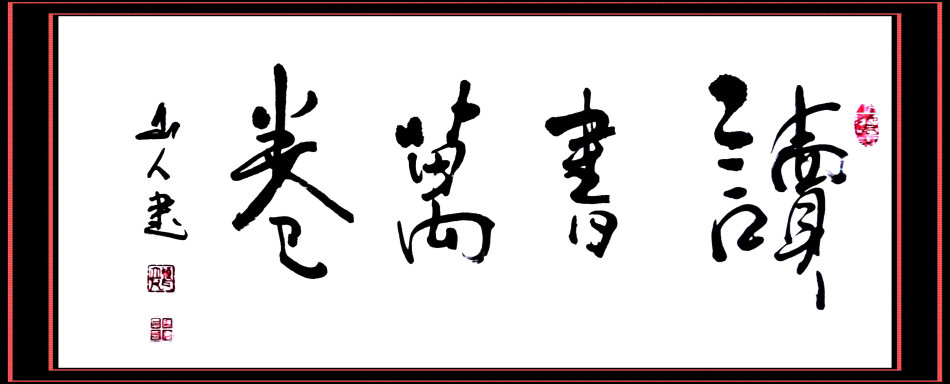 讀書萬卷
山人書